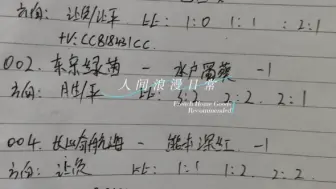 方向: 让负/让平 比: 1:0 1:1 : 2:1
+V: CC818431CC.
002. 东京绿茵 - 水户蜀葵 -1
方向: 胜/平 比: 2:2. 2:1
人间浪漫日常
French Home Goods
Recommended
004. 长崎航海 - 熊本深红. -1
方向: 让负 比: 1:1 1:2. 2:2.